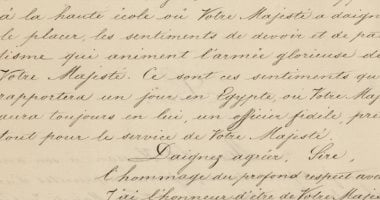 à la haute école où Votre Majesté a daign
le placer, les sentiments de devoir et de pa
tisme qui animent l'armée glorieuse de
Votre Majesté. Ce sont ces sentiments qu
rapportera un jour en Egypte, où Votre Maj
aura toujours en lui, un officier fidèle, prê
tout pour le service de Votre Majesté.
Daignez agréer, Sire,
l'hommage du profond respect avec
j'ai l'honneur d'être de Votre Majes